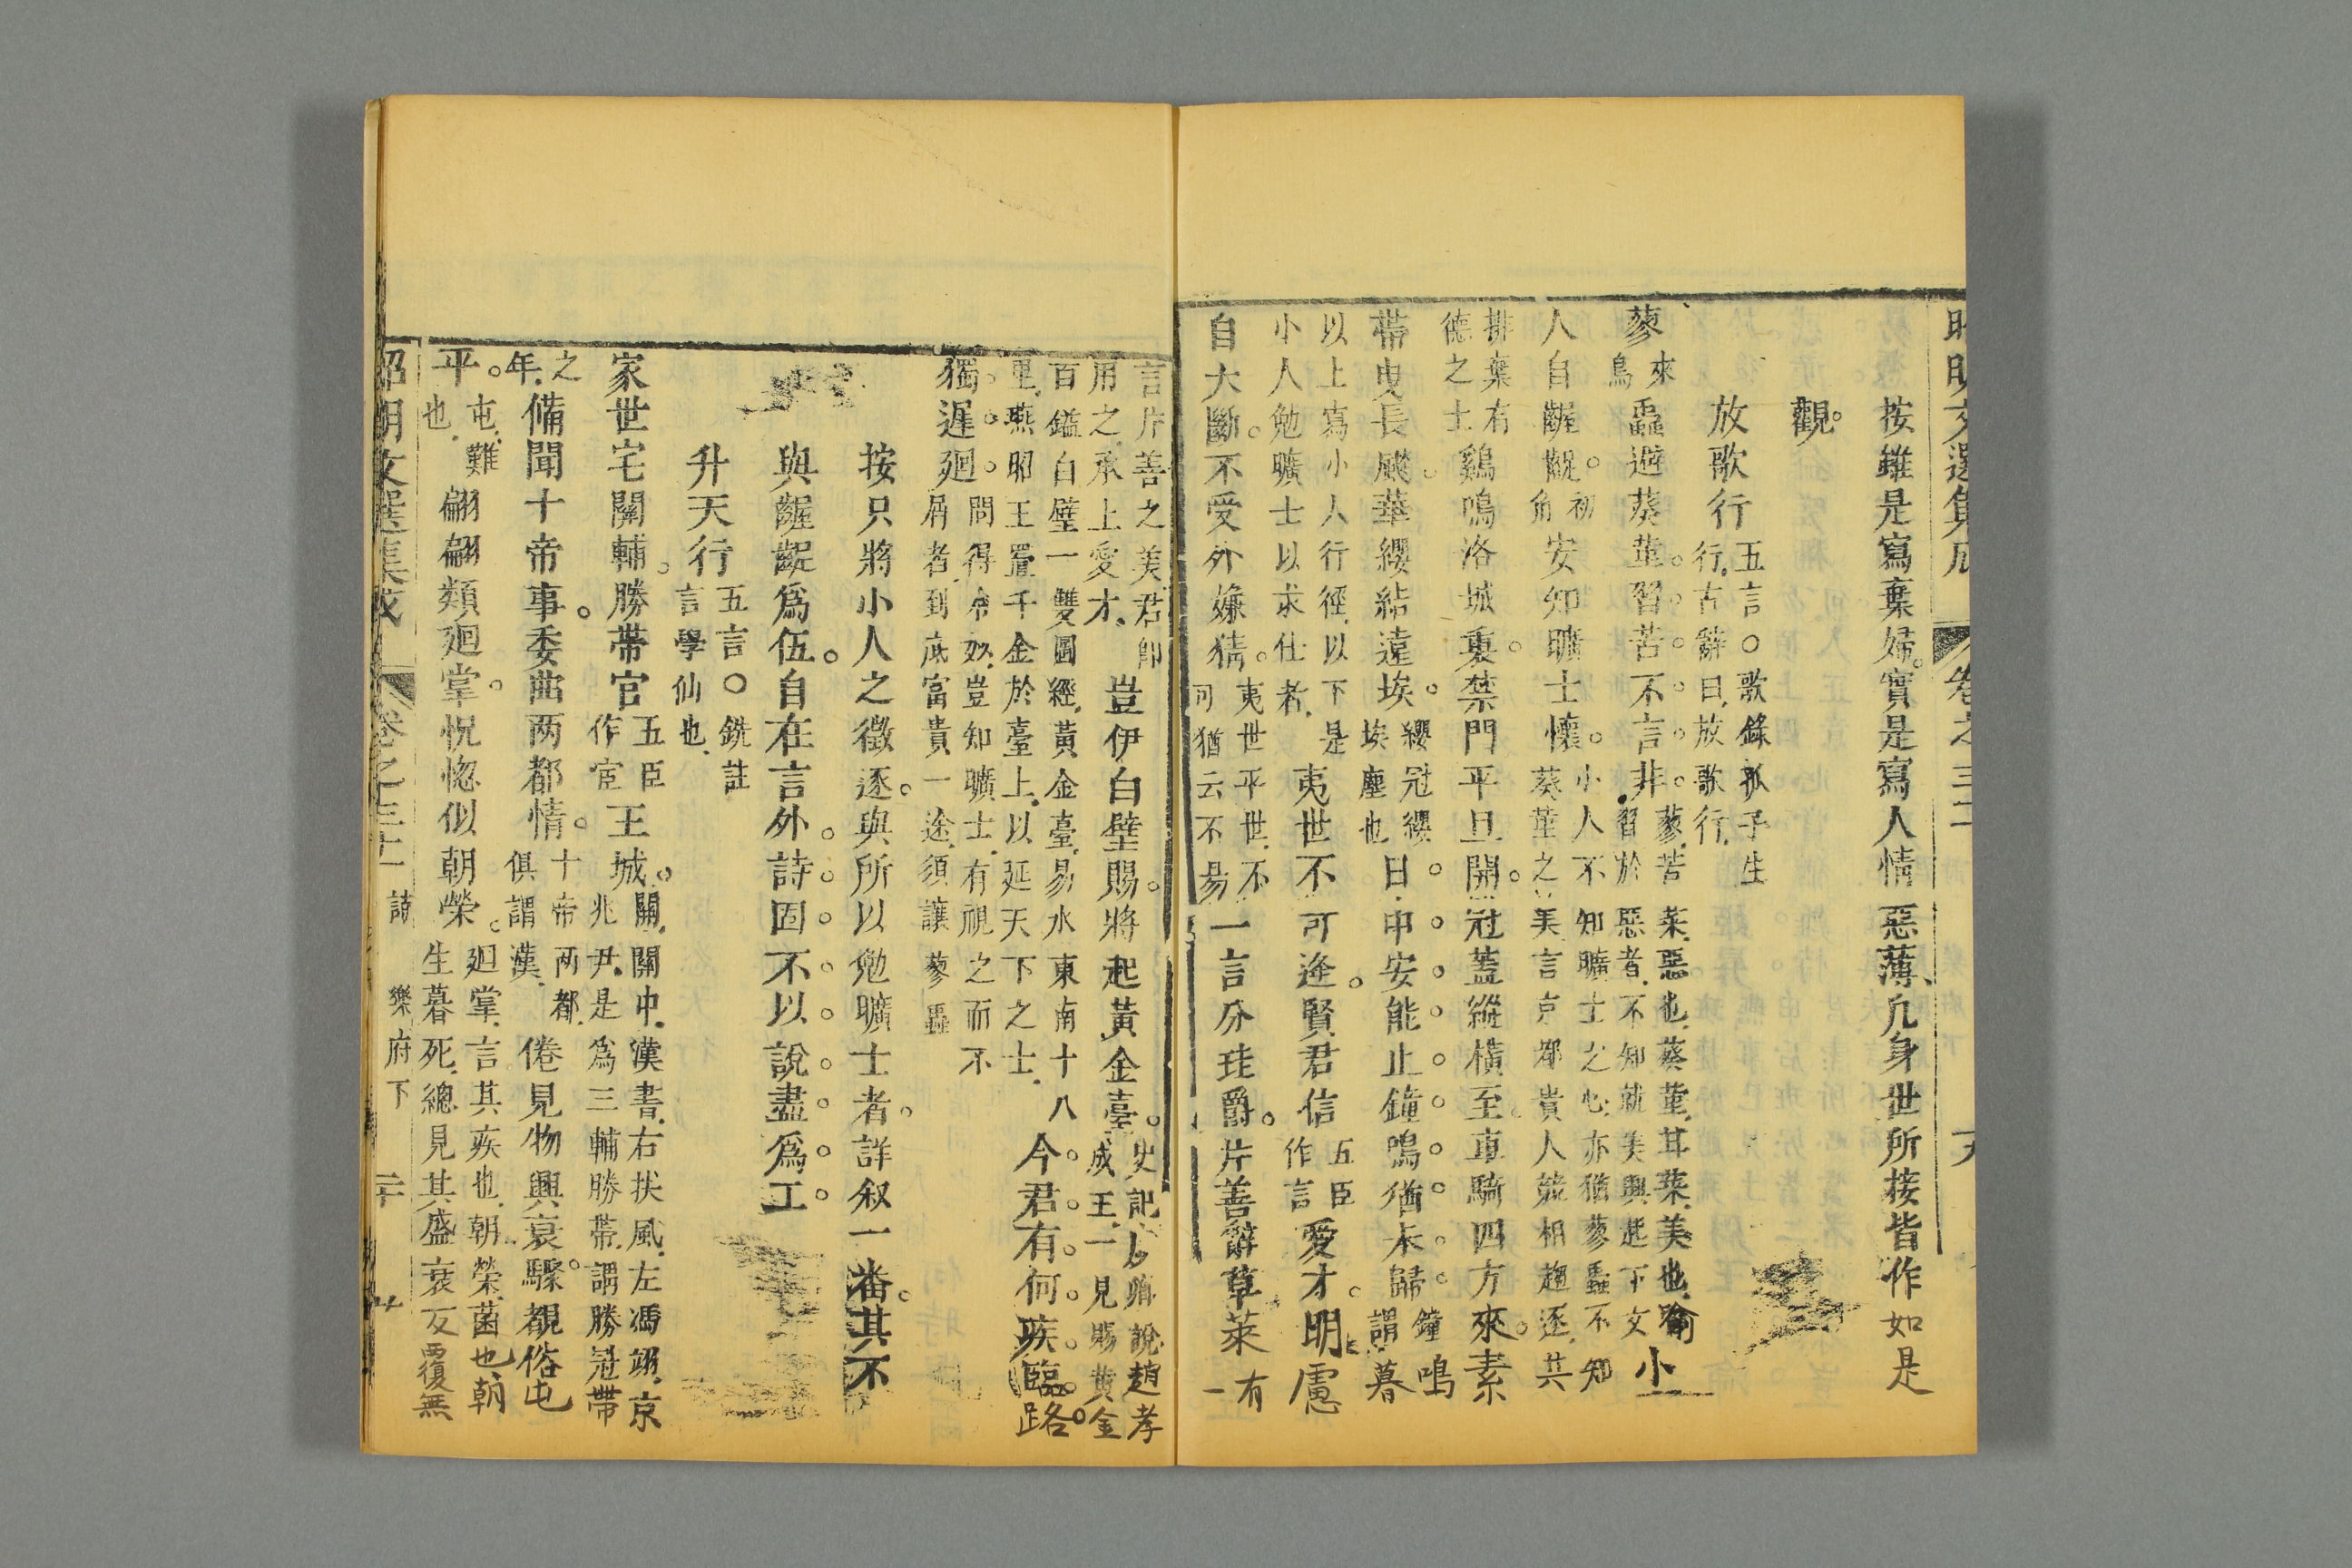 按雖是寫棄婦。實是寫人情惡薄、凡身世所接皆作如是
觀。
放歌行 五言〇歌錄孤子生
行、古辭曰、放歌行、
蓼 來
鳥 蟲避葵堇。習苦。不言。非。 蓼、苦菜、惡也、葵堇、甘菜、美也、喻
習於惡者、不知就美與起下文 小
人自齷齪。 初
角 安知曠士懷。 小人不知曠士之心、亦猶蓼蟲不知
葵堇之美、言京都貴人競相趨逐、其
排棄有
德之士 鷄鳴洛城裏。禁門平旦開。冠蓋縱橫至車騎四方來。素
帶曳長飇。華纓結遠埃。 纓冠纓
埃塵也 日中安能止鐘鳴猶未歸 鐘鳴
謂暮
以上寫小人行徑、以下是
小人勉曠士以求仕者、 夷世不可逢。賢君信 五臣
作言 愛才。明慮
自大斷。不受外嫌猜。 夷世平世、不
可猶云不易 一言分珪爵。片善辭草萊 有一
言片善之美君卽
用之、承上愛才、 豈伊白璧賜。將起黃金臺。 史記、卿說趙孝
成王、一見賜黃金
百鎰白璧一雙圖經、黃金臺、易水東南十八
里、燕昭王置千金於臺上、以延天下之士、 今君有何疾臨路。
獨遲廻。 問得奇妙、豈知曠士、有視之而不
屑者、到底富貴一途、須讓蓼蟲
按只將小人之徵逐。與所以勉曠士者。詳叙一番。其不
與齷齪爲伍。自在言外。詩固不以說盡爲工
升天行 五言〇銑註
言學仙也、
家世宅關輔。勝帶官 五臣
作宦 王城。 關、關中、漢書、右扶風、左馮翊、京
兆尹、是爲三輔勝帶、謂勝冠帶
之
年、 備聞十帝事。委曲两都情。 十帝两都、
俱謂漢、 倦見物興衰。驟覩俗屯
平。 屯、難
也、 翩翩類廻掌。怳惚似朝榮。 廻掌、言其疾也、朝榮、菌也、朝
生暮死、總見其盛衰反覆無
昭明文選集成 卷之三十一 詩 樂府下 二十